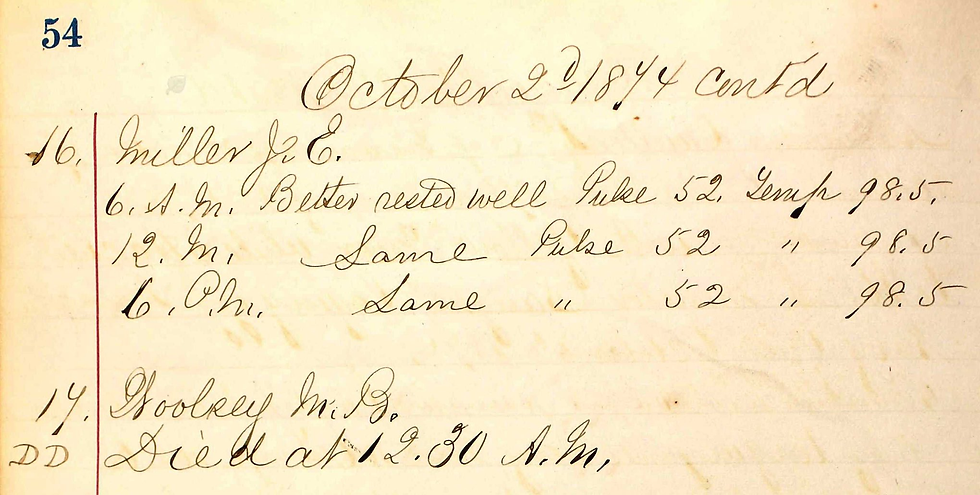 54
October 2d 1874 Contd
16. Miller J. E.
6. A.M. Better rested well Pulse 52. Temp 98.5.
12. M. Same Pulse 52 " 98.5
6. P.M. Same " 52 " 98.5
17. Woolsey M. B.
DD Died at 12.30 A.M.